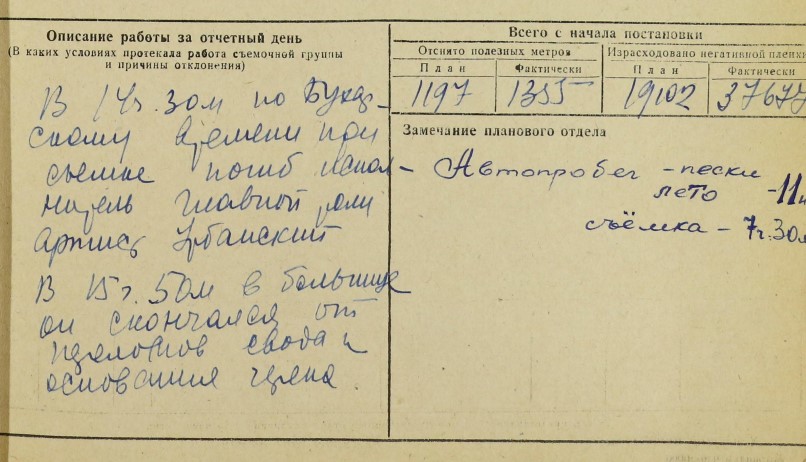 Описание работы за отчетный день
(В каких условиях протекала работа съемочной группы
и причины отклонения)
В 14ч. 30м по Бухар-
скому времени при
съемке погиб испол-
нитель главной роли
артист Урбанский
В 15ч. 50м в больнице
он скончался от
переломов свода и
основания черепа
Всего с начала постановки
Отснято полезных метров
Израсходовано негативной пленки
План
Фактически
План
Фактически
1197
1355
19102
Замечание планового отдела
Автопробег - пески
лето - 11
съёмка - 7ч. 30м